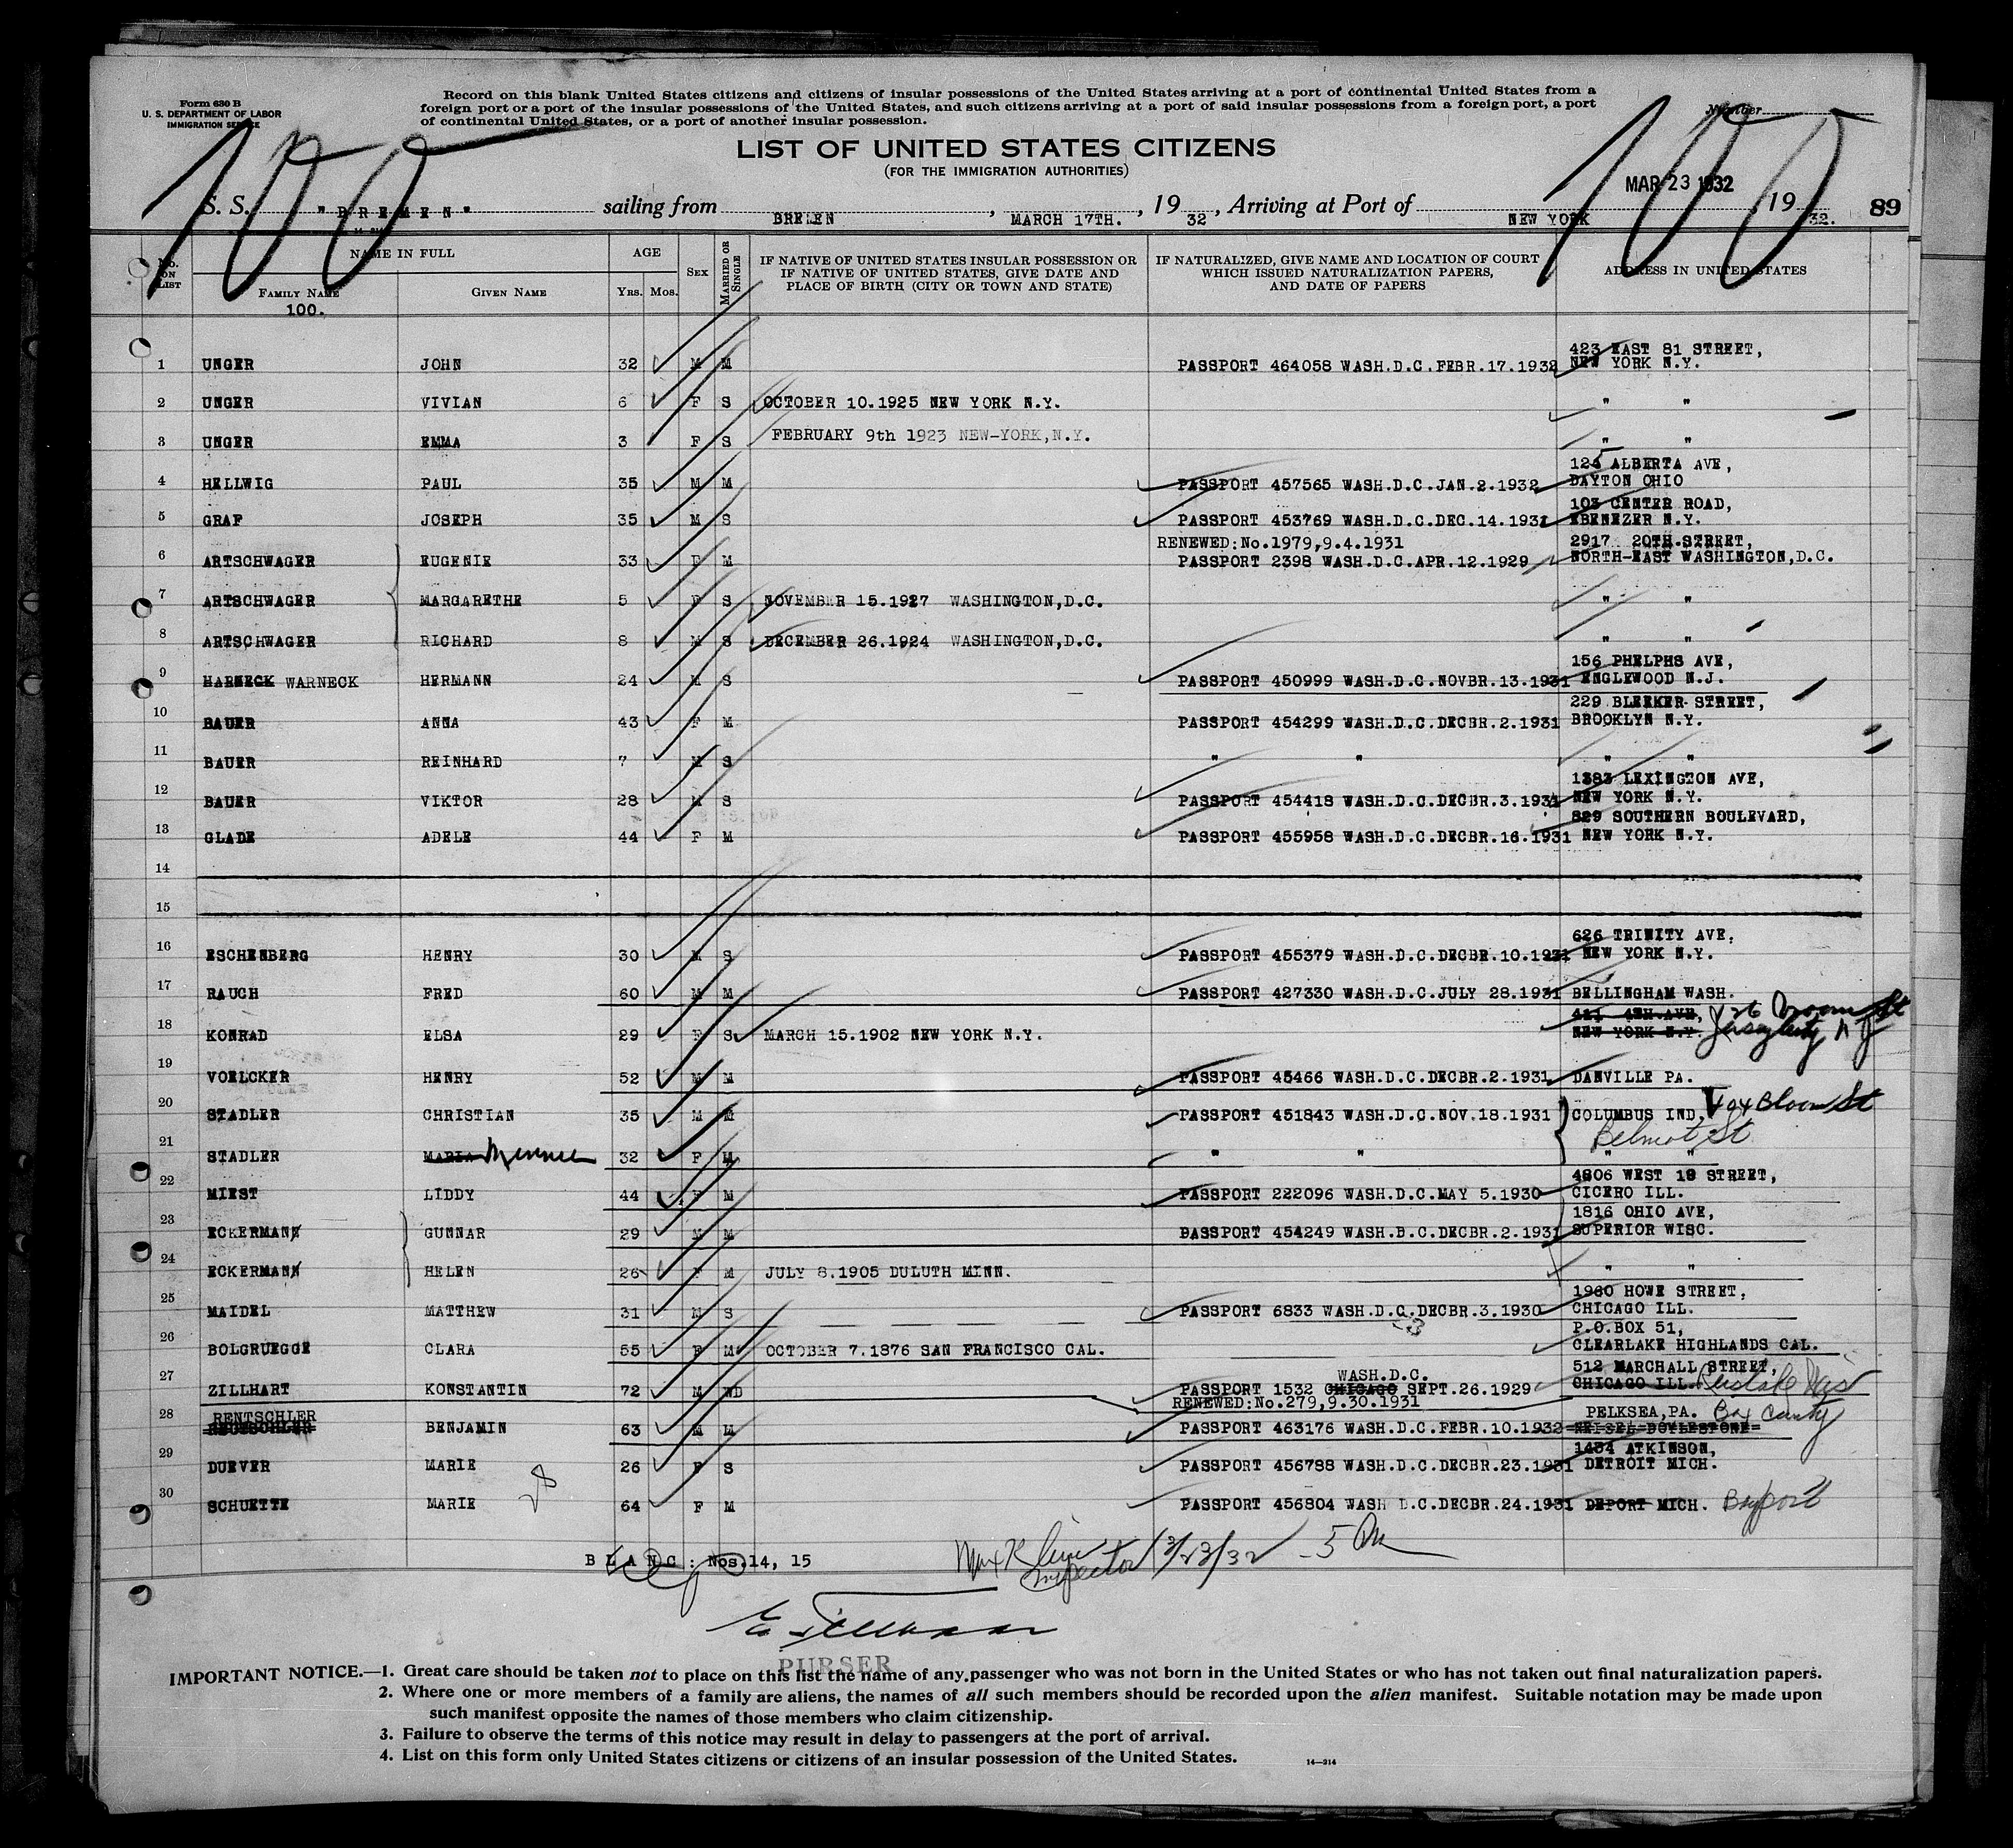 Form 630 B
U. S. DEPARTMENT OF LABOR
IMMIGRATION SERVICE
Record on this blank United States citizens and citizens of insular possessions of the United States arriving at a port of continental United States from a
foreign port or a port of the insular possessions of the United States, and such citizens arriving at a port of said insular possessions from a foreign port, a port
of continental United States, or a port of another insular possession.
Number
100 100
LIST OF UNITED STATES CITIZENS
(FOR THE IMMIGRATION AUTHORITIES)
MAR 23 1932
S. S. "BREMEN" sailing from BREMEN, MARCH 17TH., 19 32, Arriving at Port of NEW YORK, 19 32. 89
No. ON LIST NAME IN FULL AGE SEX MARRIED OR SINGLE IF NATIVE OF UNITED STATES INSULAR POSSESSION OR IF NATIVE OF UNITED STATES, GIVE DATE AND PLACE OF BIRTH (CITY OR TOWN AND STATE) IF NATURALIZED, GIVE NAME AND LOCATION OF COURT WHICH ISSUED NATURALIZATION PAPERS, AND DATE OF PAPERS ADDRESS IN UNITED STATES
FAMILY NAME GIVEN NAME YRS. MOS.
100.
1 UNGER JOHN 32 M M PASSPORT 464058 WASH.D.C.FEBR.17.1932 423 EAST 81 STREET, NEW YORK N.Y.
2 UNGER VIVIAN 6 F S OCTOBER 10.1925 NEW YORK N.Y. " "
3 UNGER EMMA 3 F S FEBRUARY 9th 1923 NEW-YORK,N.Y. " "
4 HELLWIG PAUL 35 M M PASSPORT 457565 WASH.D.C.JAN.2.1932 ALBERTA AVE, DAYTON OHIO
5 GRAF JOSEPH 35 M S PASSPORT 453769 WASH.D.C.DEC.14.1931 103 CENTER ROAD, EBENEZER N.Y.
6 ARTSCHWAGER EUGENIE 33 F M RENEWED:No.1979,9.4.1931 PASSPORT 2398 WASH.D.C.APR.12.1929 2917 20TH.STREET, NORTH-EAST WASHINGTON,D.C.
7 ARTSCHWAGER MARGARETHE 5 F S NOVEMBER 15.1927 WASHINGTON,D.C. " "
8 ARTSCHWAGER RICHARD 8 M S DECEMBER 26.1924 WASHINGTON,D.C. " "
9 HARNECK WARNECK HERMANN 24 M S PASSPORT 450999 WASH.D.C.NOVBR.13.1931 156 PHELPHS AVE, ENGLEWOOD N.J.
10 BAUER ANNA 43 F M PASSPORT 454299 WASH.D.C.DECBR.2.1931 229 BLEEKER STREET, BROOKLYN N.Y.
11 BAUER REINHARD 7 M S " " " "
12 BAUER VIKTOR 28 M S PASSPORT 454418 WASH.D.C.DECBR.3.1931 1383 LEXINGTON AVE, NEW YORK N.Y.
13 GLADE ADELE 44 F M PASSPORT 455958 WASH.D.C.DECBR.16.1931 829 SOUTHERN BOULEVARD, NEW YORK N.Y.
14
15
16 ESCHENBERG HENRY 30 M S PASSPORT 455379 WASH.D.C.DECBR.10.1931 626 TRINITY AVE, NEW YORK N.Y.
17 RAUCH FRED 60 M M PASSPORT 427330 WASH.D.C.JULY 28.1931 BELLINGHAM WASH.
18 KONRAD ELSA 29 F S MARCH 15.1902 NEW YORK N.Y. 411 4TH.AVE, NEW YORK N.Y. 26 Broom St Jersey City N J
19 VOELCKER HENRY 52 M M PASSPORT 45466 WASH.D.C.DECBR.2.1931 DANVILLE PA.
20 STADLER CHRISTIAN 35 M M PASSPORT 451843 WASH.D.C.NOV.18.1931 COLUMBUS IND, 404 Bloom St
Belmont St
21 STADLER MARIA Minnie 32 F M " " " "
22 MIEST LIDDY 44 F M PASSPORT 222096 WASH.D.C.MAY 5.1930 4806 WEST 19 STREET, CICERO ILL.
23 ECKERMANN GUNNAR 29 M M PASSPORT 454249 WASH.D.C.DECBR.2.1931 1816 OHIO AVE, SUPERIOR WISC.
24 ECKERMANN HELEN 26 F M JULY 8.1905 DULUTH MINN. " "
25 MAIDEL MATTHEW 31 M S PASSPORT 6833 WASH.D.C.DECBR.3.1930 1960 HOWE STREET, CHICAGO ILL.
26 BOLGRUEGGE CLARA 55 F M OCTOBER 7.1876 SAN FRANCISCO CAL. P.O.BOX 51, CLEARLAKE HIGHLANDS CAL.
27 ZILLHART KONSTANTIN 72 M WD WASH.D.C. PASSPORT 1532 CHICAGO SEPT.26.1929 512 MARCHALL STREET, CHICAGO ILL.
28 RENTSCHLER BENJAMIN 63 M M RENEWED:No.279,9.30.1931 PASSPORT 463176 WASH.D.C.FEBR.10.1932 PELKSEA,PA. County
29 DUEVER MARIE 26 F S PASSPORT 456788 WASH.D.C.DECBR.23.1931 1454 ATKINSON, DETROIT MICH.
30 SCHUETTE MARIE 64 F M PASSPORT 456804 WASH D.C.DECBR.24.1931 DEPORT MICH. Bayport
28
BLANC: Nos.14, 15
Inspector 3/23/32
PURSER
IMPORTANT NOTICE.—1. Great care should be taken not to place on this list the name of any passenger who was not born in the United States or who has not taken out final naturalization papers.
2. Where one or more members of a family are aliens, the names of all such members should be recorded upon the alien manifest. Suitable notation may be made upon
such manifest opposite the names of those members who claim citizenship.
3. Failure to observe the terms of this notice may result in delay to passengers at the port of arrival.
4. List on this form only United States citizens or citizens of an insular possession of the United States.
14—214